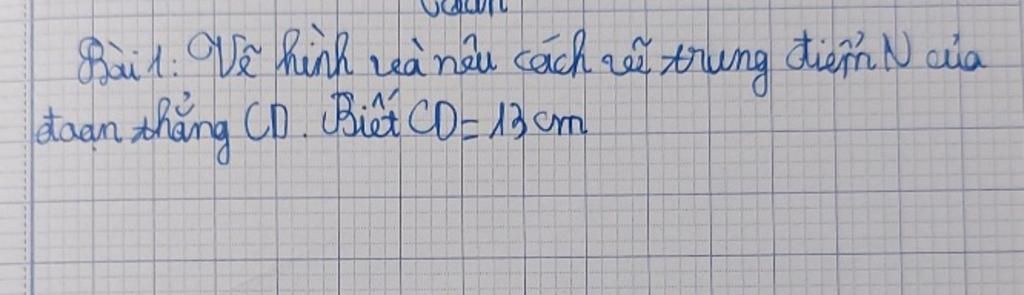 Bài 1: Vẽ hình và nêu cách vẽ trung điểm N của
đoạn thẳng CD. Biết CD = 13 cm